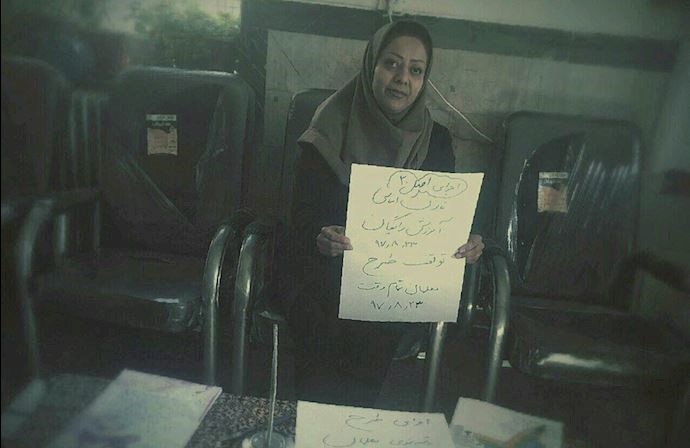 اجرای اصل ۳۰
قانون اساسی
آموزش رایگان
۹۷٫۸٫۲۳
توقف طرح
معلمان تمام وقت
۹۷٫۸٫۲۳
اجرای طرح
رتبه‌بندی معلمان